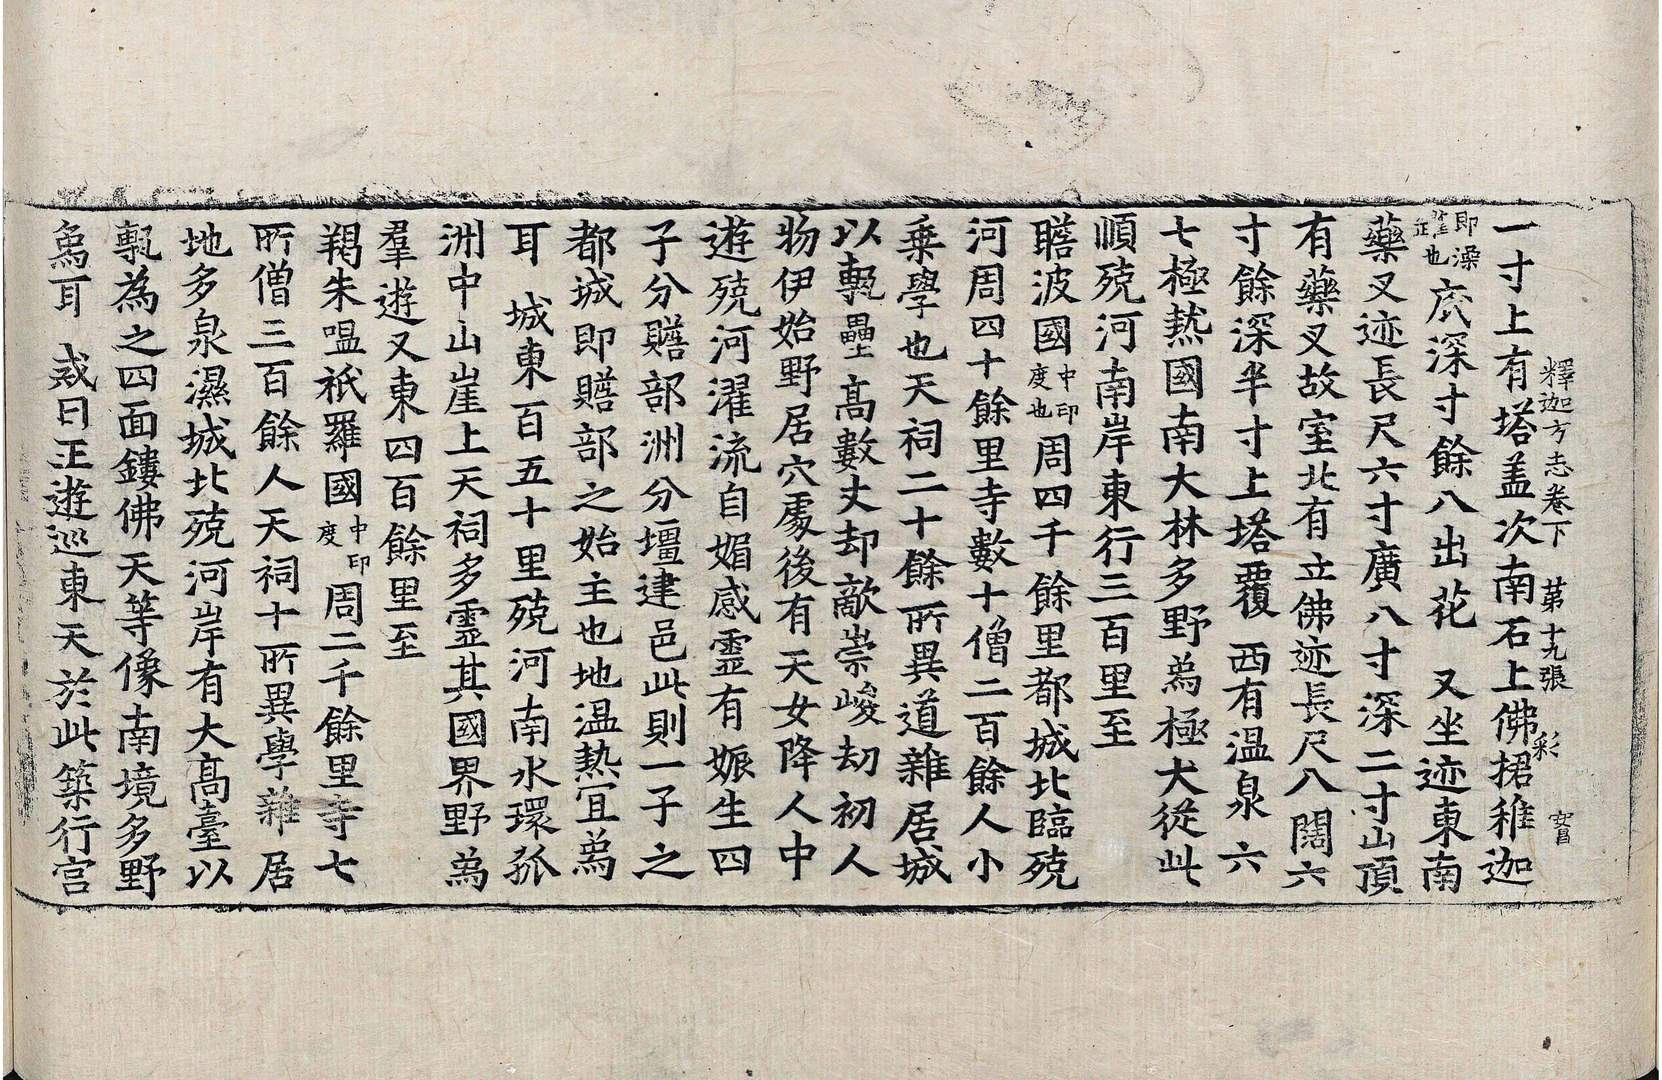 釋迦方志卷下 第十九張 彩
一寸上有塔盖次南石上佛捃稚迦
即澡罐也底深寸餘八出花 又坐迹東南
藥叉迹長尺六寸廣八寸深二寸山頂
有藥叉故室北有立佛迹長尺八闊六
寸餘深半寸寸上塔覆 西有温泉六
七極𤍠國南大林多野爲極犬從此
順殑河南岸東行三百里至
瞻波國中印度也周四千餘里都城北臨殑
河周四十餘里寺數十僧二百餘人小
乗學也天祠二十餘所異道雜居城
以甎壘高數丈却敵崇峻劫初人
物伊始野居穴處後有天女降人中
遊殑河濯流自媚感靈有娠生四
子分贍部洲分壃建邑此則一子之
都城即贍部之始主也地温𤍠冝爲
耳 城東百五十里殑河南水環孤
洲中山崖上天祠多靈其國界野爲
羣遊又東四百餘里至
羯朱嗢祇羅國中印度周二千餘里寺七
所僧三百餘人天祠十所異學雜居
地多泉濕城北殑河岸有大高臺以
甎為之四面鏤佛天等像南境多野
爲耳 戒日王遊巡東天於此築行宫